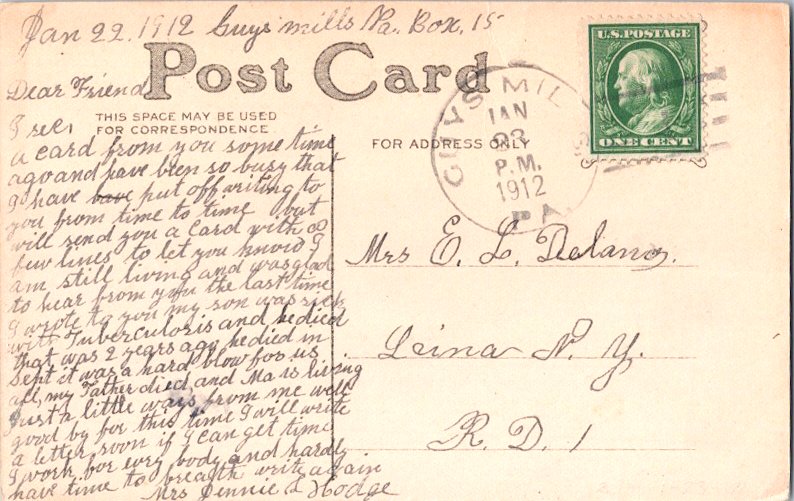 Jan 22. 1912 Guys mills Pa. Box. 15
Post Card
Dear Friend
THIS SPACE MAY BE USED
FOR CORRESPONDENCE
FOR ADDRESS ONLY
U.S. POSTAGE
ONE CENT
GUYS MILLS
JAN
P.M.
1912
PA.
I rec,
a card from you some time
ago and have been so busy that
I have have put off writing to
you from time to time but
will send you a card with a
few lines to let you know I
am still living and was glad
to hear from you the last time
I wrote to you my son was sick
with Tuberculoris and he died
that was 2 years ago he died in
Sept it was a hard blow for us
all, my Father died and Ma is living
just a little ways from me well
good by for this time I will write
a letter soon if I can get time
I work for evry body and hardly
have time to breath write again
Mrs Jennie L Hodge
Mrs E. L. Delano,
N. Y.
R. D. 1